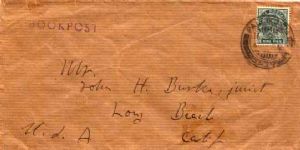 BOOKPOST
Mr.
John H. Burke, junr
Long Beach
U. S. A Calif